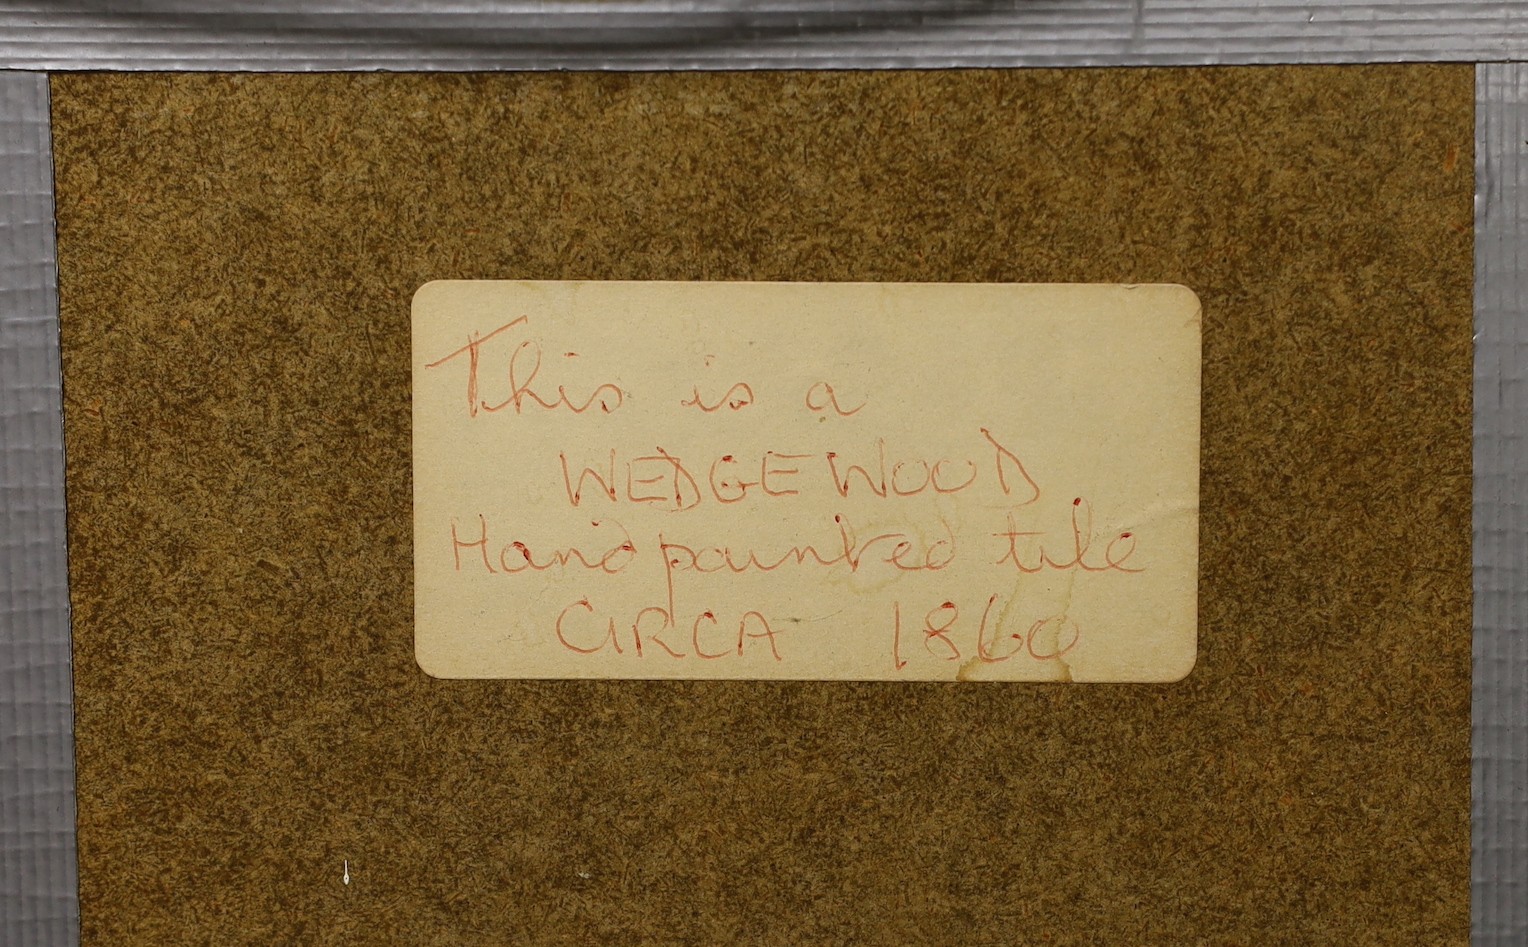 This is a
WEDGEWOOD
Hand painted tile
CIRCA 1860